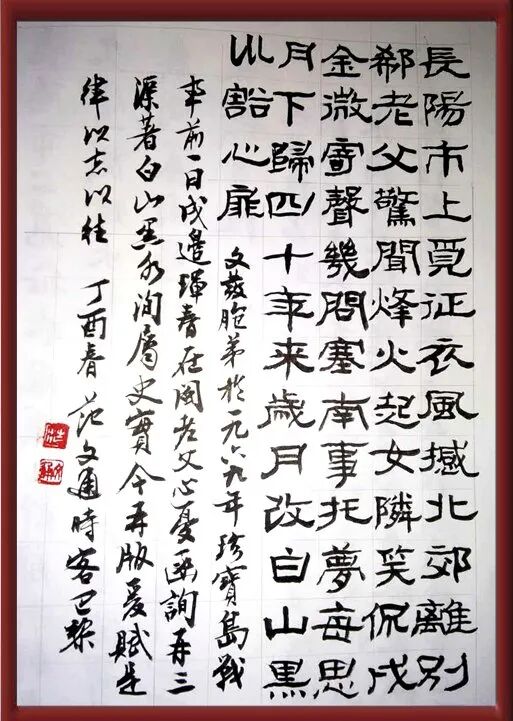 長陽市上覓征衣風撼北郊離別
郗老父驚聞烽火起女隣笑侃戍
金微寄聲幾問塞南事托夢每思
月下歸四十年來歲月改白山黑
水豁心扉 文發胞弟於一九六九年珍寶島戰
事前一日戍邊琿春在閩老父心憂函詢再三
渠著白山黑水洵屬史實今再版爰賦是
律以志以往 丁酉春 范文通時客巴黎